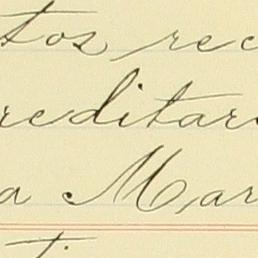 tos rec
reditar
a Mar
ti